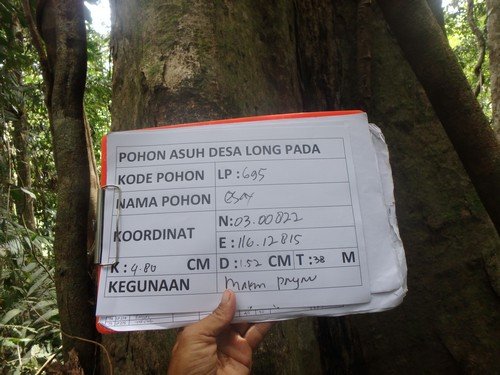 POHON ASUH DESA LONG PADA
KODE POHON LP : 695
NAMA POHON
KOORDINAT N: 03.00822
E : 116.12815
K : 4.80 CM D : 1.52 CM T : 38 M
KEGUNAAN